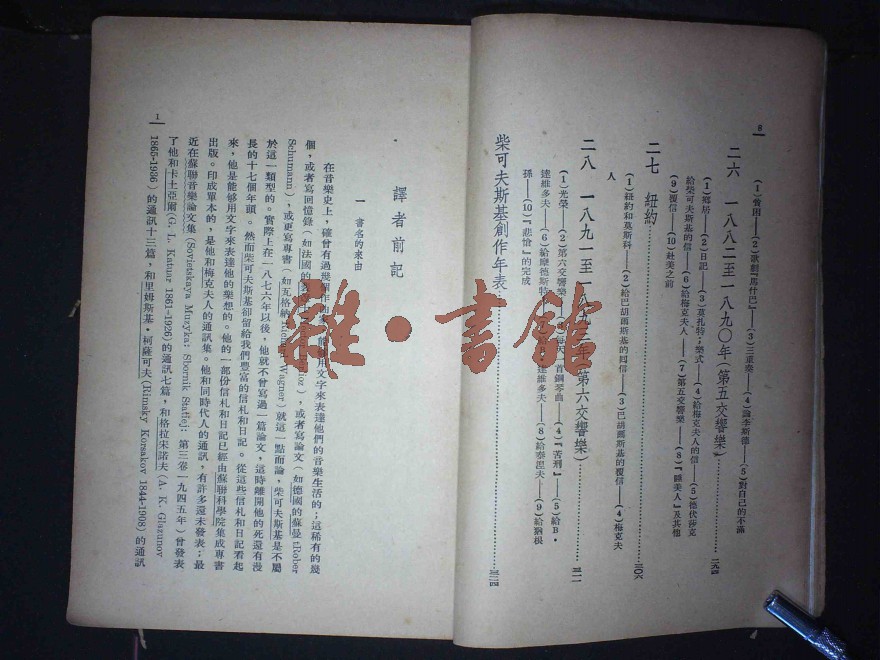 8
(1)舊園——(2)歌劇『馬什巴』——(3)三重奏——(4)論李斯德——(5)對自己的不滿
二六 一八八二至一八九〇年(第五交響樂)……二九四
(1)鄉居——(2)日記——(3)莫扎特;樂式——(4)給梅克夫人的信——(5)德伏莎克
給柴可夫斯基的信——(6)給梅克夫人——(7)第五交響樂——(8)『睡美人』及其他
(9)覆信——(10)赴美之前
二七 紐約……三〇六
(1)紐約和莫斯科——(2)給巴胡爾斯基的回信——(3)巴胡爾斯基的覆信——(4)梅克夫
人
二八 一八九一至一八九三年(第六交響樂)……三一一
(1)光榮——(2)第六交響樂——首鋼琴曲——(4)『苦刑』——(5)給B·
達維多夫——(6)給摩德斯特——達維多夫——(8)給泰涅夫——(9)給
孫——(10)『悲愴』的完成
柴可夫斯基創作年表……三二四
雜·書館
1
譯者前記
一 書名的來由
在音樂史上,確曾有過幾個作曲家能用文字來表達他們的音樂生活的;這稀有的幾
個,或者寫回憶錄(如法國的oz),或者寫論文(如德國的蘇曼 tRober
Schumann),或更寫專書(如瓦格納 Wagner)就這一點而論,柴可夫斯基是不屬
於這一類型的。實際上在一八七六年以後,他就不曾寫過一篇論文,這時離開他的死還有漫
長的十七個年頭。然而柴可夫斯基卻留給我們豐富的信札和日記。從這些信札和日記看起
來,他是能够用文字來表達他的樂想的。他的一部份信札和日記已經由蘇聯科學院集成專書
出版。印成單本的,是他和梅克夫人的通訊集。他和同時代人的通訊,有許多還未發表;最
近在蘇聯音樂論文集(Sovietskaya Muzyka: Sbornik Statiej: 第三卷一九四五年)曾發表
了他和卡土亞爾(G. L. Katuar 1861-1926)的通訊七篇,和格拉宋諾夫(A. K. Glazunov
1865-1936)的通訊十三篇,和里姆斯基·柯薩可夫(Rimsky Korsakov 1844-1908)的通訊